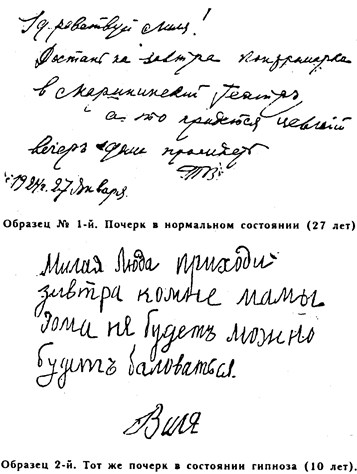 Здравствуй Миля!
Достань на завтра контрамарки
в Мариинский Театръ
а то придется целый
вечеръ дома просидеть
1924г. 27 Января.
Образец № 1-й. Почерк в нормальном состоянии (27 лет)
Милая Люда приходи
завтра комне мамы
дома не будетъ можно
будетъ баловаться.
Виля
Образец 2-й. Тот же почерк в состоянии гипноза (10 лет).